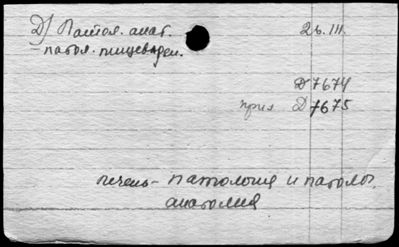 Д) Патол. анат. 26.III.
– патол. пищеварен.
Д 7674
прил Д 7675
печень – патология и патолог.
анатомия